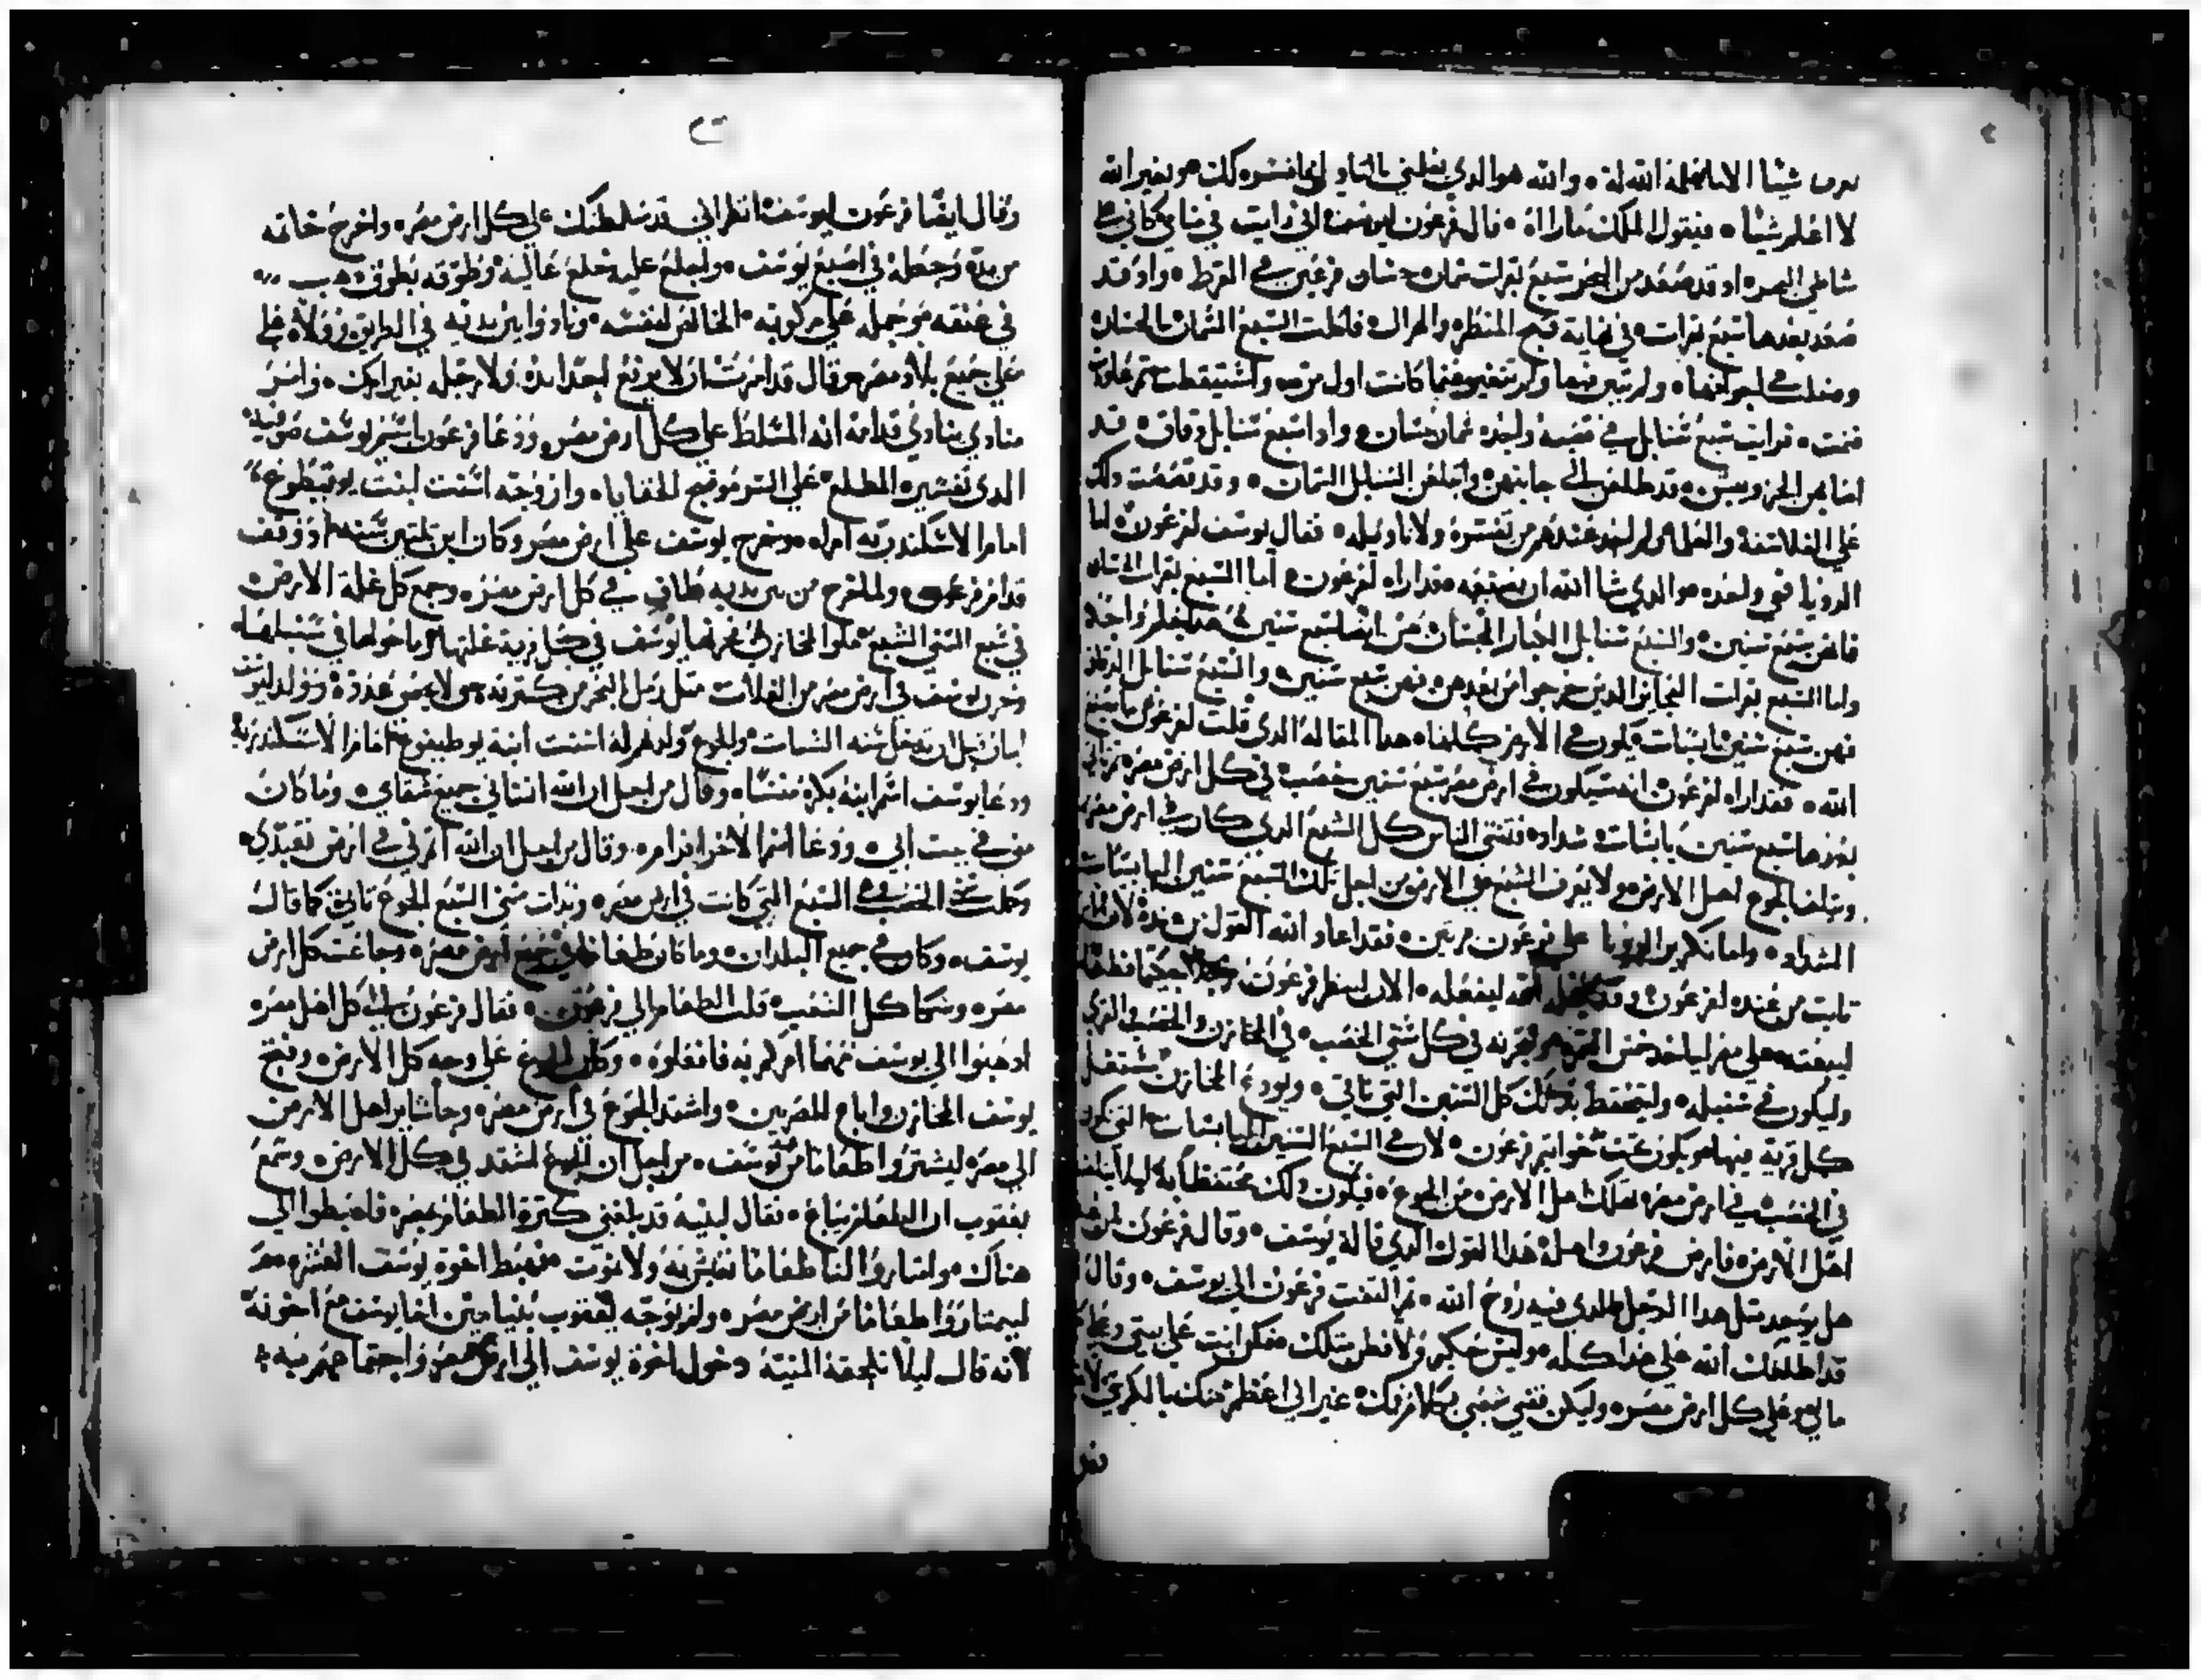 شيئا الا الله له والله هو الدي
لا اعلم شيئا فيقول الملك ما راه قال فرعون ليوسف اني رايت في منامي كاني علي
شاطي البحر اد قد صعد من البحر سبع بقرات سمان حسان فرعين في القرط واد قد
صعد بعدها سبع بقرات في غاية قبح المنظر والهزال فاكلت السبع السمان الحسان
ودخلت في اجوافها ولم تبين فيها ولم تتغير فيما كانت اول مره واستيقطت تم عاودت
فنمت فرايت سبع سنابل في قصبه واحده سمان حسان وادا سبع سنابل دقاق قد
اصابهن الحر ويبسن قد طلعن الي جانبهن وابتلعن السنابل السمان وقد قصصت دلك
علي الفلاسفة والعلما ولم اجد عندهم من تفسره ولا تاويله فقال يوسف لفرعون اما
الرويا فهي واحده هو الدي شا الله ان يصنعه قد اراه لفرعون اما السبع بقرات الحسان
فانهن سبع سنين والسبع سنابل الجياد الحسان هن ايضا سبع سنين
واما السبع بقرات العجاف الدين خرجوا من بعدهن فهن سبع سنين والسبع سنابل الدقاق
فهن سبع سنين يابسات يكون في الارض كلها هدا المقاله الدي قلت لفرعون
الله فقد اراه لفرعون انه سيكون في ارض مصر سبع سنين خصب في كل ارض مصر
بعدها سبع سنين يابسات شداد فتنسي الناس كل الشبع الدي كان في ارض مصر
ويبلغ الجوع اهل الارض ولا يعرف الشبع في الارض من اجل تلك السبع سنين اليابسات
الشداد واما تكرير الرويا علي فرعون مرتين فقد اعاد الله القول
تابت من عنده لفرعون ليفعله الان لينظر فرعون
ليبعته علي مصر لياخد خمس في كل سني الخصب في المخازن
وليكون في سنبله وليحتفظ بدلك كل السنين التي تاتي ويودع المخازن
كل قرية فيها ويكون تحت خواتيم فرعون لان في السبع السنين اليابسات التي تكون
في الخصب في ارض مصر تهلك اهل الارض من الجوع فيكون دلك محتفظا به ليلا
اهل الارض فارضى فرعون واهله هدا القول الدي قاله يوسف وقال فرعون
هل يوجد متل هدا الرجل الدي فيه روح الله تم التفت فرعون الي يوسف وقال
قد اطلعك الله علي هدا كله وليس حكيم ولا فطن متلك فكن انت علي بيتي
علي كل ارض مصر وليكن شعبي بكلامك غير اني اعظم منك بالكرسي
وقال ايضا فرعون ليوسف انظر اني قد سلطتك علي كل ارض مصر واخرج خاتمه
من يده وجعله في اصبع يوسف وخلع عليه خلع غالية وطوقه بطوق دهب
في عنقه تم حمله علي مركوبه الخالص لنفسه ونادوا بين يديه في الطريق
علي جميع بلاد مصر وقال قد امرت ان لا يرفع احد ايده ولا رجله بغير امرك وامر
منادي ينادي قدامه انه المسلط علي كل ارض مصر ودعا فرعون اسم يوسف
الدي تفسيره المطلع علي السر موضح الخفايا وازوجه اسنت ابنت يوتيطوع
امام الاسكندريه امراه وخرج يوسف علي ارض مصر وكان ابن تلتين سنه اد وقف
قدام فرعون ولما خرج من بين يديه طاف في كل ارض مصر وجمع كل غلة الارض
في سبع السني الشبع ملوا المخازن خزنها يوسف في كل قرية غلتها وما حولها في سنبلها
وخزن يوسف في ارض مصر من الغلات متل رمل البحر من كترته ولا يحصي عدده وولد ليوسف
ابنان قبل ان تدخل سنه السبات والجوع ولدهم له اسنت ابنة يوطيفوع امام الاسكندريه
ودعا يوسف اسم ابنه بكره منسا وقال من اجل ان الله انساني جميع شقاي وما كان
مني في بيت ابي ودعا اسم الاخر افرام وقال من اجل ان الله اتمرني في ارض تعبدي
وكملت سني الخصب السبع التي كانت في ارض مصر وبدات سني السبع الجوع تاتي كما قال
يوسف وكان في جميع البلدان وما كان طعاما في جميع ارض مصر وجاعت كل ارض
مصر وشكا كل الشعب قلت الطعام الي فرعون فقال فرعون الي كل اهل مصر
ادهبوا الي يوسف فمهما امركم به فافعلوه وكان الجوع علي وجه كل الارض وفتح
يوسف المخازن واباع للمصريين واشتد الجوع في ارض مصر وجا ساير اهل الارض
الي مصر ليشتروا طعاما من يوسف من اجل ان الجوع اشتد في كل الارض وسمع
يعقوب ان الطعام يباع فقال لبنيه قد بلغني كترة الطعام بمصر فاهبطوا الي
هناك وامتاروا لنا طعاما نعيش به ولا نموت فهبط اخوة يوسف العشره مصر
ليمتاروا طعاما من ارض مصر ولم يوجه يعقوب بنيامين اخا يوسف مع اخوته
لانه قال ليلا تلحقه المنية دخول اخوة يوسف الي ارض مصر واجتماعهم به